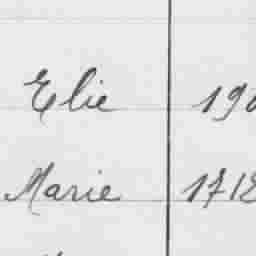 Elie 190
Marie 1718